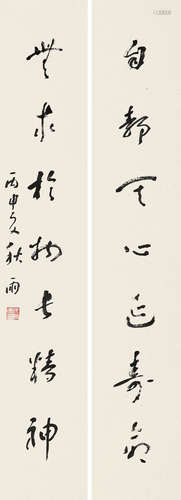 自静其心延寿命
無求於物长精神
丙申 秋雨